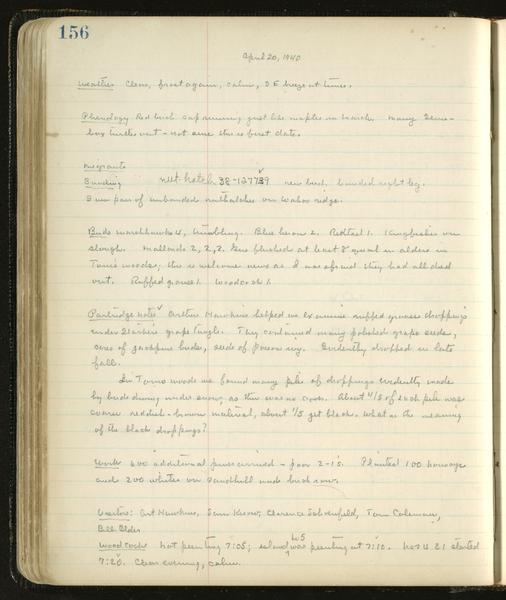 156
April 20, 1940
Weather Clear, frost again, calm, SE breeze at times.
Phenology Red birch sap running just like maples in March. Many
turtles out - not sure this is first date.
Migrants
Banding nuthatch 38-127739 new bird, banded right leg.
Saw pair of unbanded nuthatches on Wabao ridge.
Birds marshhawks 4, tumbling. Blue heron 2. Redtail 1. Kingfisher on
slough. Mallards 2, 2, 2. Gus flushed at least 8 quail in alders in
Tom's woods; this is welcome news as I was afraid they had all died
out. Ruffed grouse 1. Woodcock 1.
Partridge notes Arthur Hawkins helped us examine ruffed grouse droppings
under grape tangle. They contained many polished grape seeds,
some of buds, seeds of poison ivy. Evidently dropped in late
fall.
In Toms woods we found many piles of droppings evidently made
by birds during under snow, as this was no roost. About 4/5 of each pile was
coarse reddish-brown material, about 1/5 jet black. What is the meaning
of the black droppings?
Work 600 additional pines arrived - poor 2-1s. Planted 100 norways
and 200 whites on sandhill and birch row.
Visitors: Art Hawkins, Clarence Tom Coleman,
Bill Elder
Woodcock Not peenting 7:05; island was peenting at 7:10. No 21 started
7:20. Clear evening, calm.